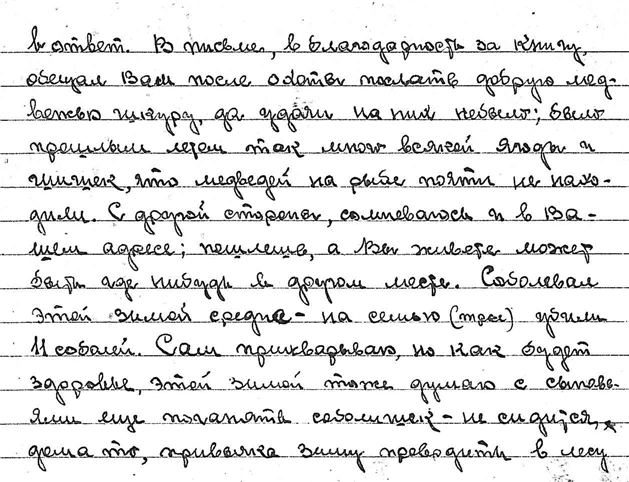 в ответ. В письме, в благодарность за книгу,
обещал Вам после охоты послать добрую мед-
вежью шкуру, да удачи на них небыло; было
прошлым летом так много всякой ягоды и
шишек, что медведей на рыбе почти не нахо-
дили. С другой стороны, сомневаюсь и в Ва-
шем адресе; пошлешь, а Вы живете может
быть где нибудь в другом месте. Соболевал
этой зимой средне - на семью (трое) убили
11 соболей. Сам прихварываю, но как будет
здоровье, этой зимой тоже думаю с сыновь-
ями еще погонять соболишек - не сидится,
дома то, привычка зиму проводить в лесу